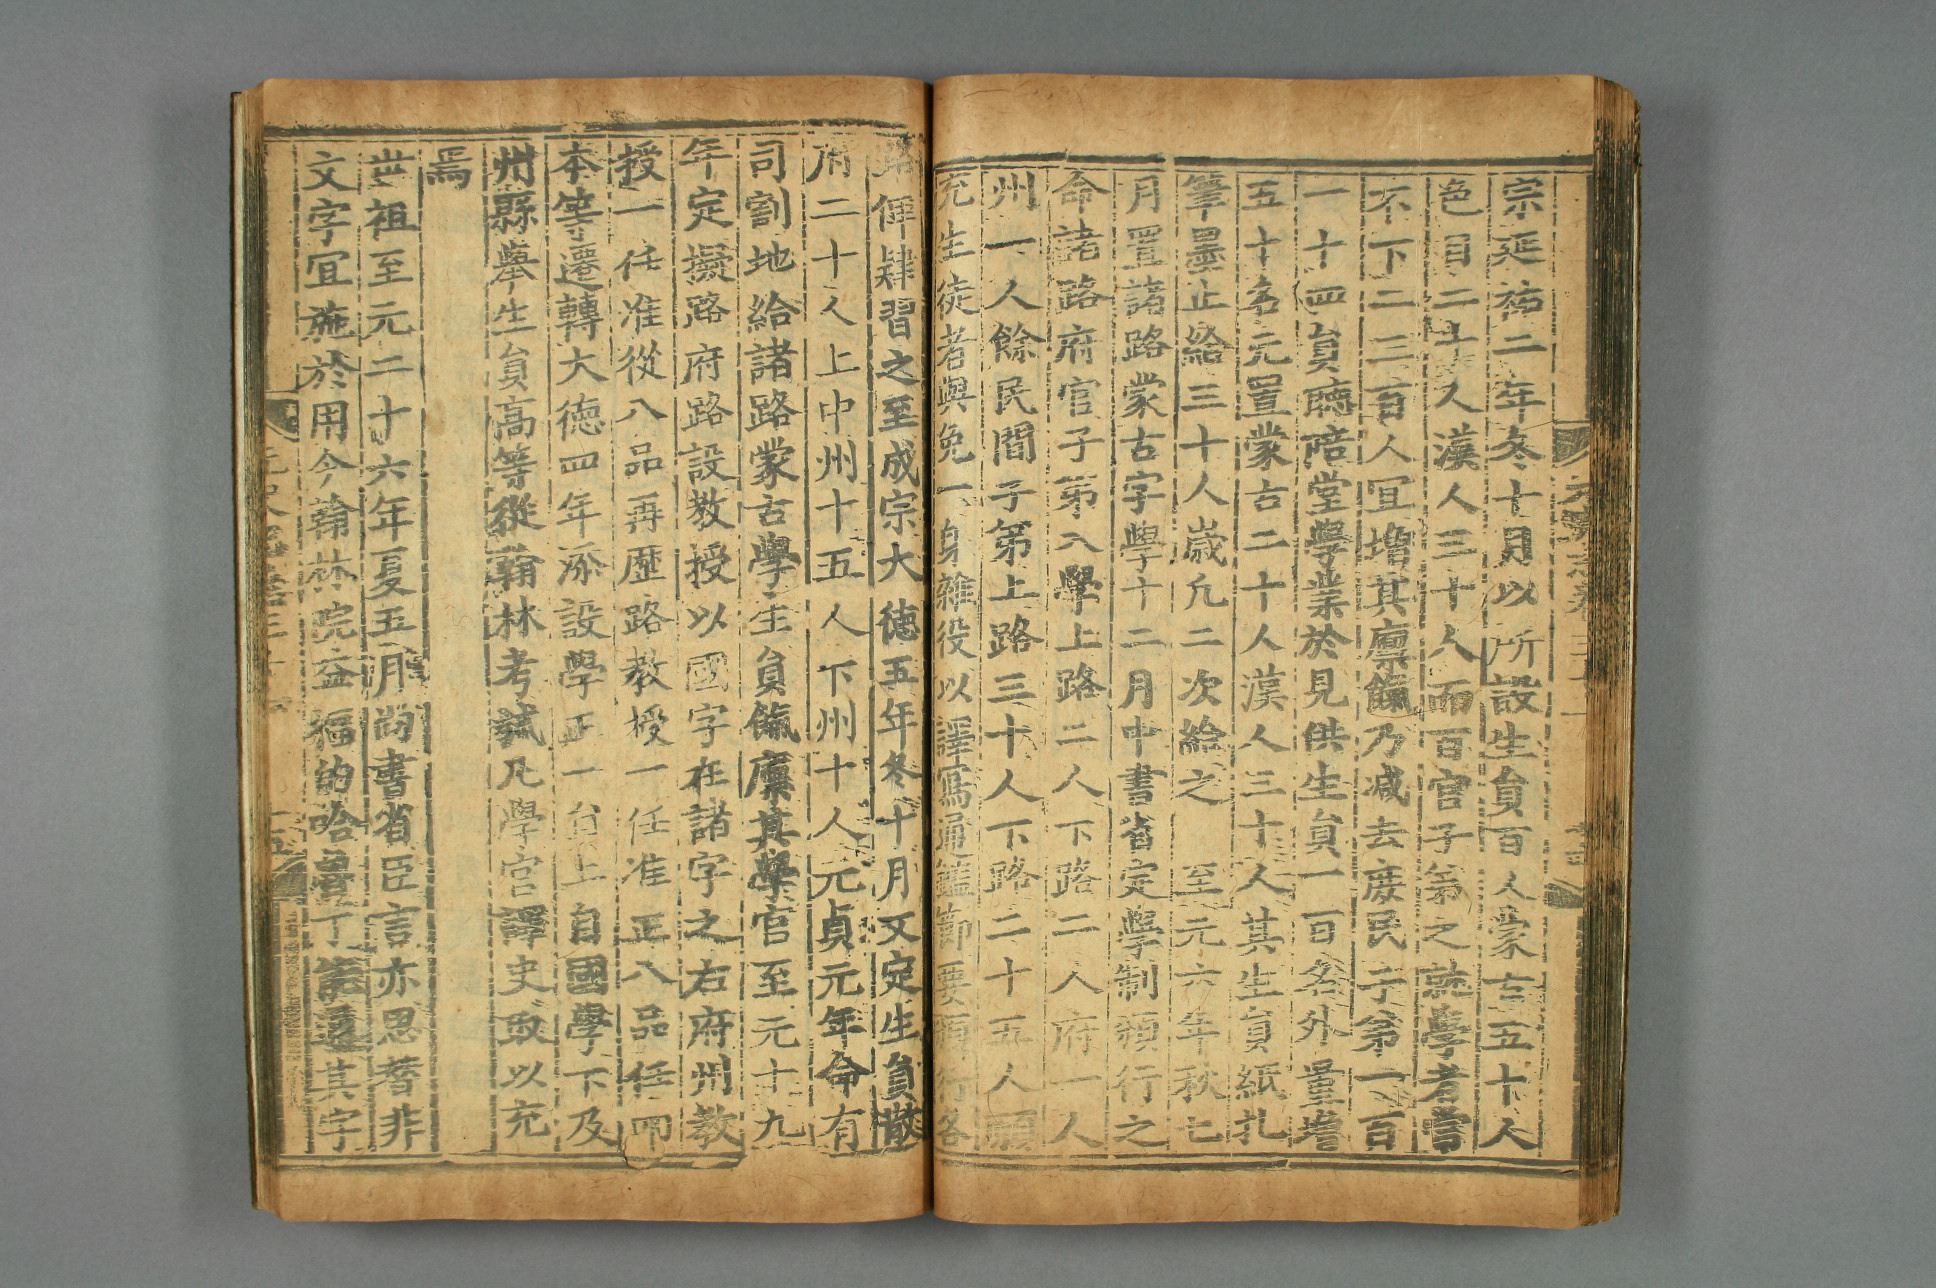 宗延祐二年冬十月以所設生員百人蒙古五十人
色目二十人漢人三十人而百官子弟之就學者嘗
不下二三百人宜增其廩餼乃減去庶民子弟一百
一十四員聽陪堂學業於見供生員一百名外量增
五十名元置蒙古二十人漢人三十人其生員紙札
筆墨止給三十人歲凡二次給之　至元六年秋七
月置諸路蒙古字學十二月中書省定學制頒行之
命諸路府官子弟入學上路二人下路二人府一人
州一人餘民間子弟上路三十人下路二十五人願
充生徒者與免一身雜役以譯寫通鑑節要頒行各
路俾肄習之至成宗大德五年冬十月又定生員散
府二十人上中州十五人下州十人元貞元年命有
司割地給諸路蒙古學生員餼廩其學官至元十九
年定擬路府路設教授以國字在諸字之右府州教
授一任准從八品再歷路教授一任准正八品任回
本等遷轉大德四年添設學正一員上自國學下及
州縣舉生員高等從翰林考試凡學官譯史取以充
焉
世祖至元二十六年夏五月尚書省臣言亦思替非
文字宜施於用今翰林院益福的哈魯丁能通其字